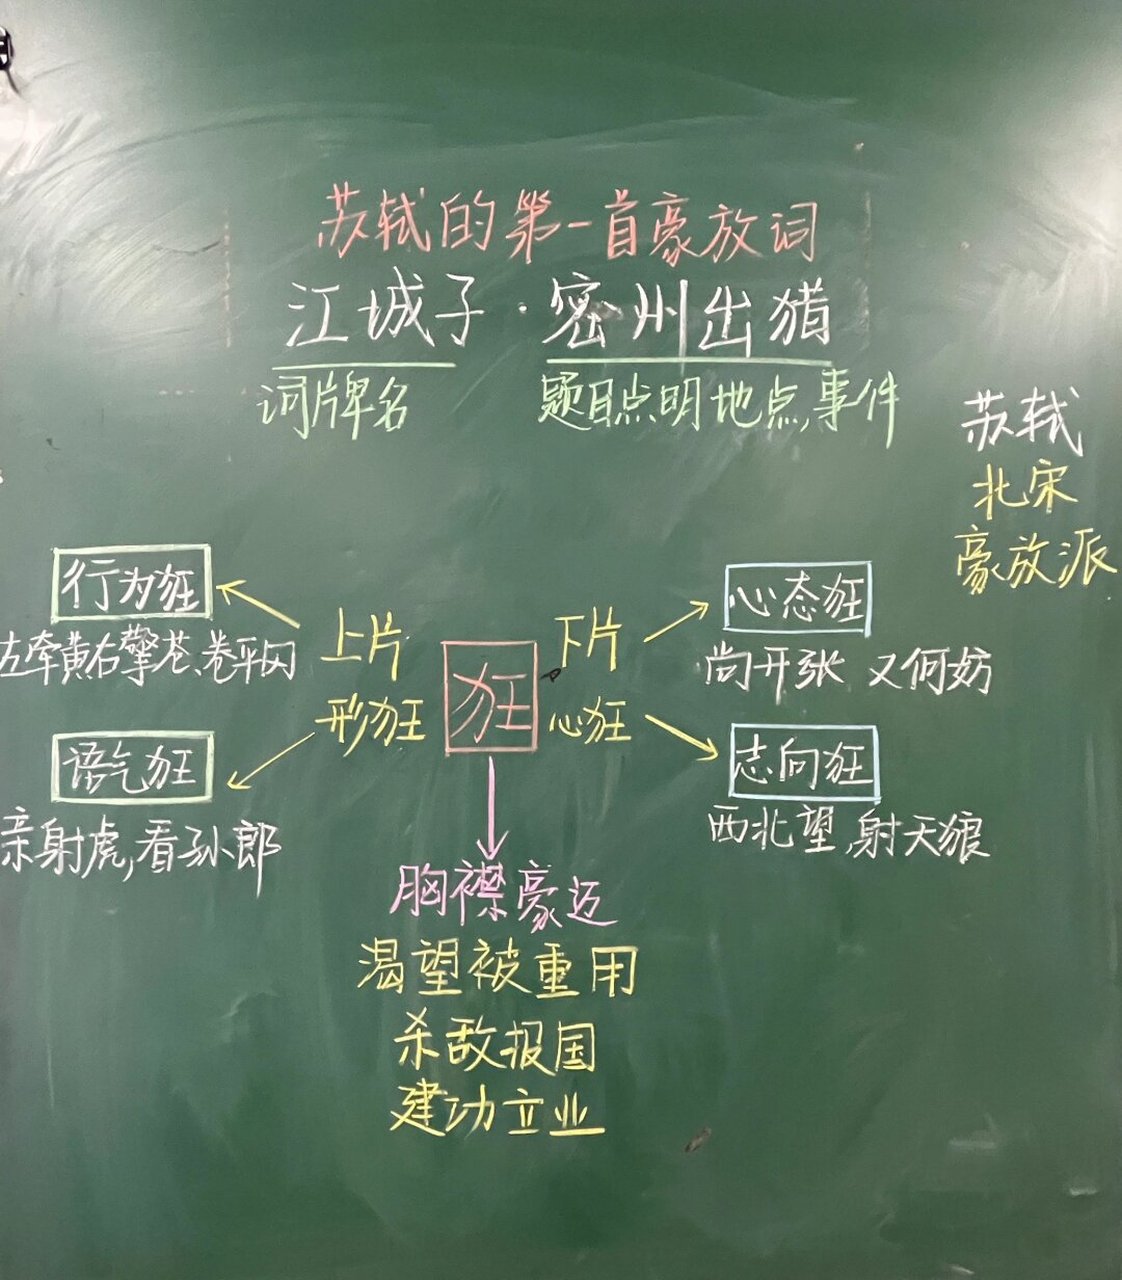 苏轼的第一首豪放词
江城子·密州出猎
词牌名 题目点明地点,事件
苏轼
北宋
豪放派
行为狂
左牵黄右擎苍、卷平冈
语气狂
亲射虎,看孙郎
上片
形狂
狂
下片
心狂
心态狂
尚开张 又何妨
志向狂
西北望,射天狼
胸襟豪迈
渴望被重用
杀敌报国
建功立业